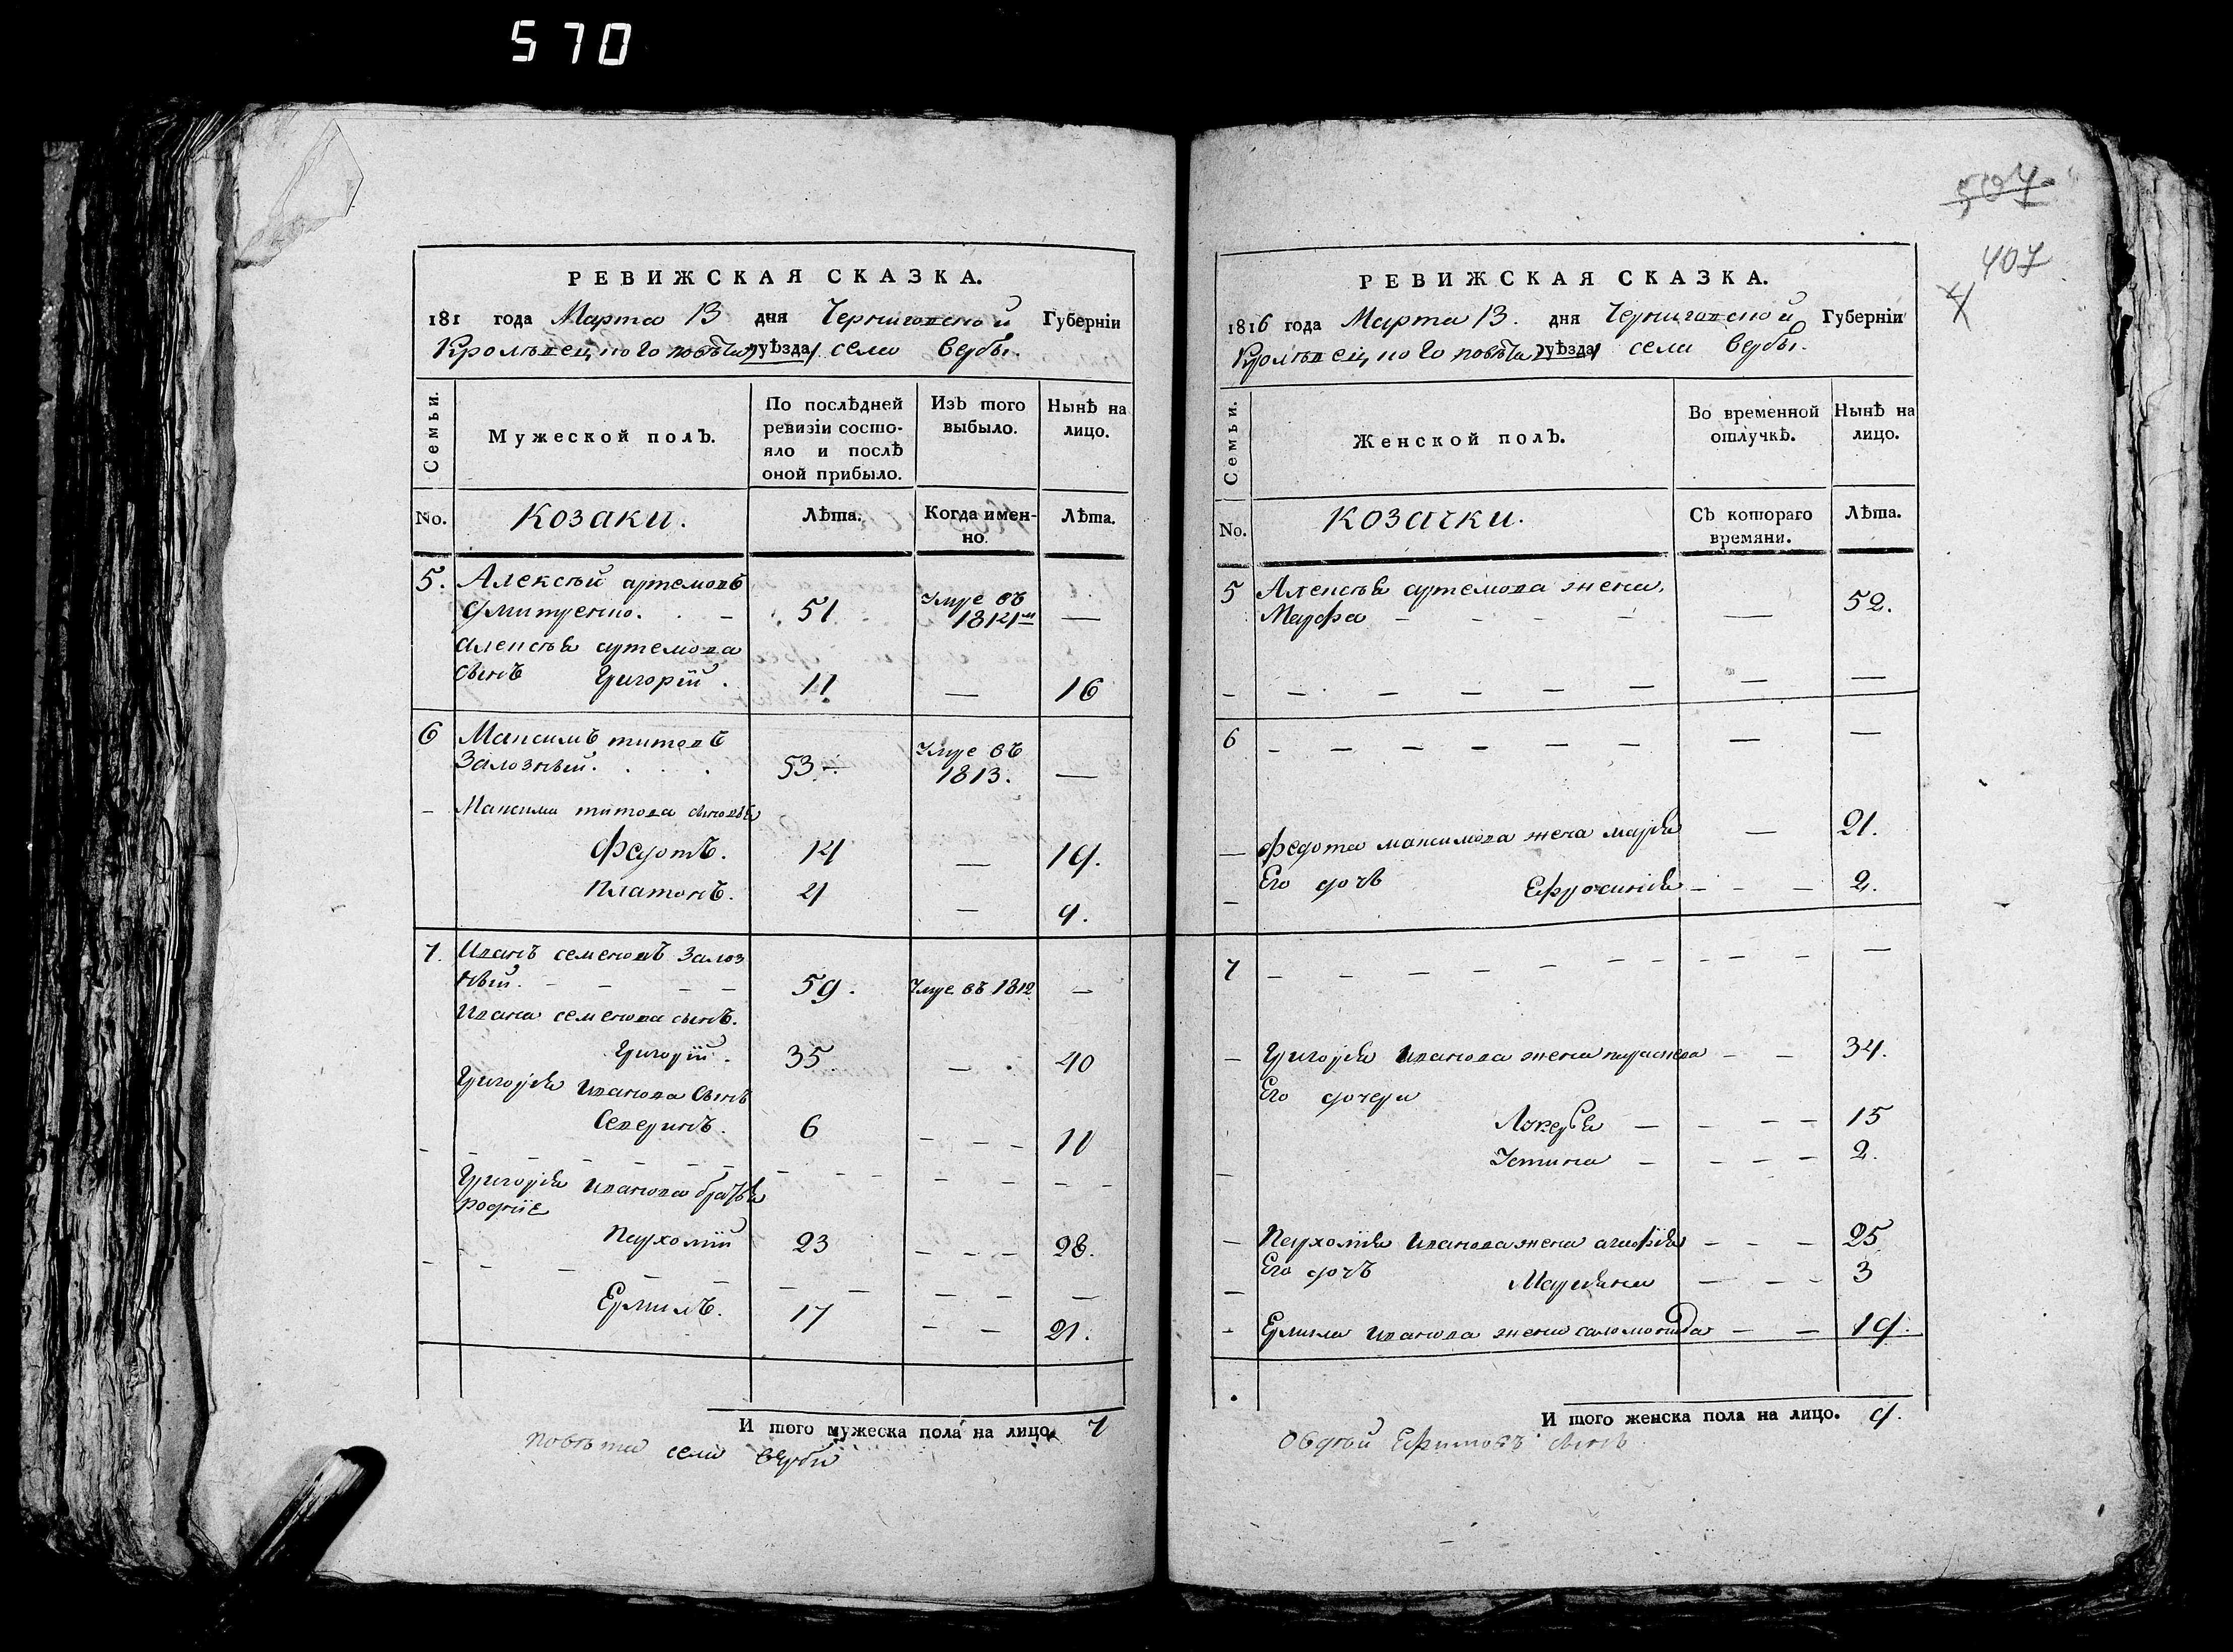 570
РЕВИЖСКАЯ СКАЗКА.
181 года Марта 13 дня Черниговской Губерніи
Кролевецкого повѣта /уѣзда/ села Вербы.
Семьи.
Мужеской полъ.
По послѣдней ревизіи состояло и послѣ оной прибыло.
Изъ того выбыло.
Нынѣ на лицо.
No. Козаки. Лѣта. Когда именно. Лѣта.
5. Алексѣй артемовъ
Дмитренко. 51 Умре въ 1814м —
алексѣя артемова
сынъ Григорій. 11 — 16
6 Максимъ титовъ
Залозный. 53 Умре въ 1813. —
Максима титова сыновья
Федотъ. 14 — 19.
Платонъ. 4 — 9.
7. Иванъ семеновъ Залоз
ный. 59. Умре въ 1812 —
Ивана семенова сынъ.
Григорій. 35 — 40
Григорія иванова сынъ
Северинъ. 6 — 11
Григорія иванова братья
родніе
Пархомій 23 — 28.
Ермилъ. 17 — 21.
И того мужеска пола на лицо. 7
повѣта села верби
507
407
РЕВИЖСКАЯ СКАЗКА.
1816 года Марта 13. дня Черниговской Губерніи
Кролевецкого повѣта /уѣзда/ села Вербы.
Семьи.
Женской полъ.
Во временной отлучкѣ.
Нынѣ на лицо.
No. Козачки. Съ котораго времяни. Лѣта.
5 Алексѣя артемова жена
Марфа — 52.
6
Федота максимова жена марія — 21.
Его дочь Ефросинія — 2.
7
Григорія иванова жена параскева — 34.
Его дочери
Лукерія — 15
Устина — 2.
Пархомія иванова жена агафія — 25
Его дочь Маріяна — 3
Ермила иванова жена саломонида — 19.
И того женска пола на лицо. 9.
Овдѣй Ефимовъ сынъ